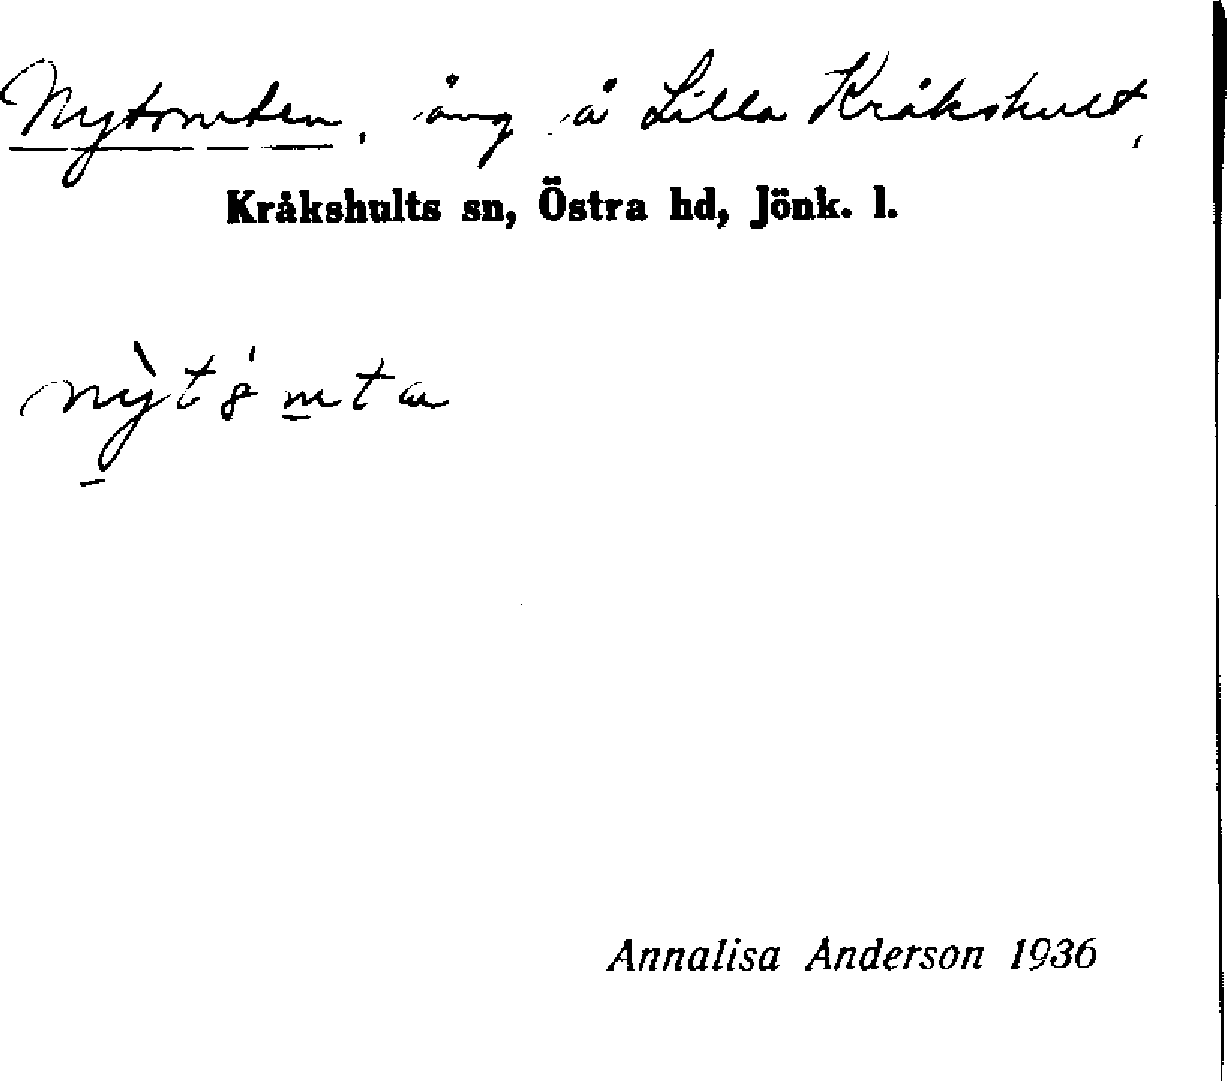 Nytomten, äng å Lilla Kråkshult,
Kråkshults sn, Östra hd, Jönk. l.
Annalisa Anderson 1936